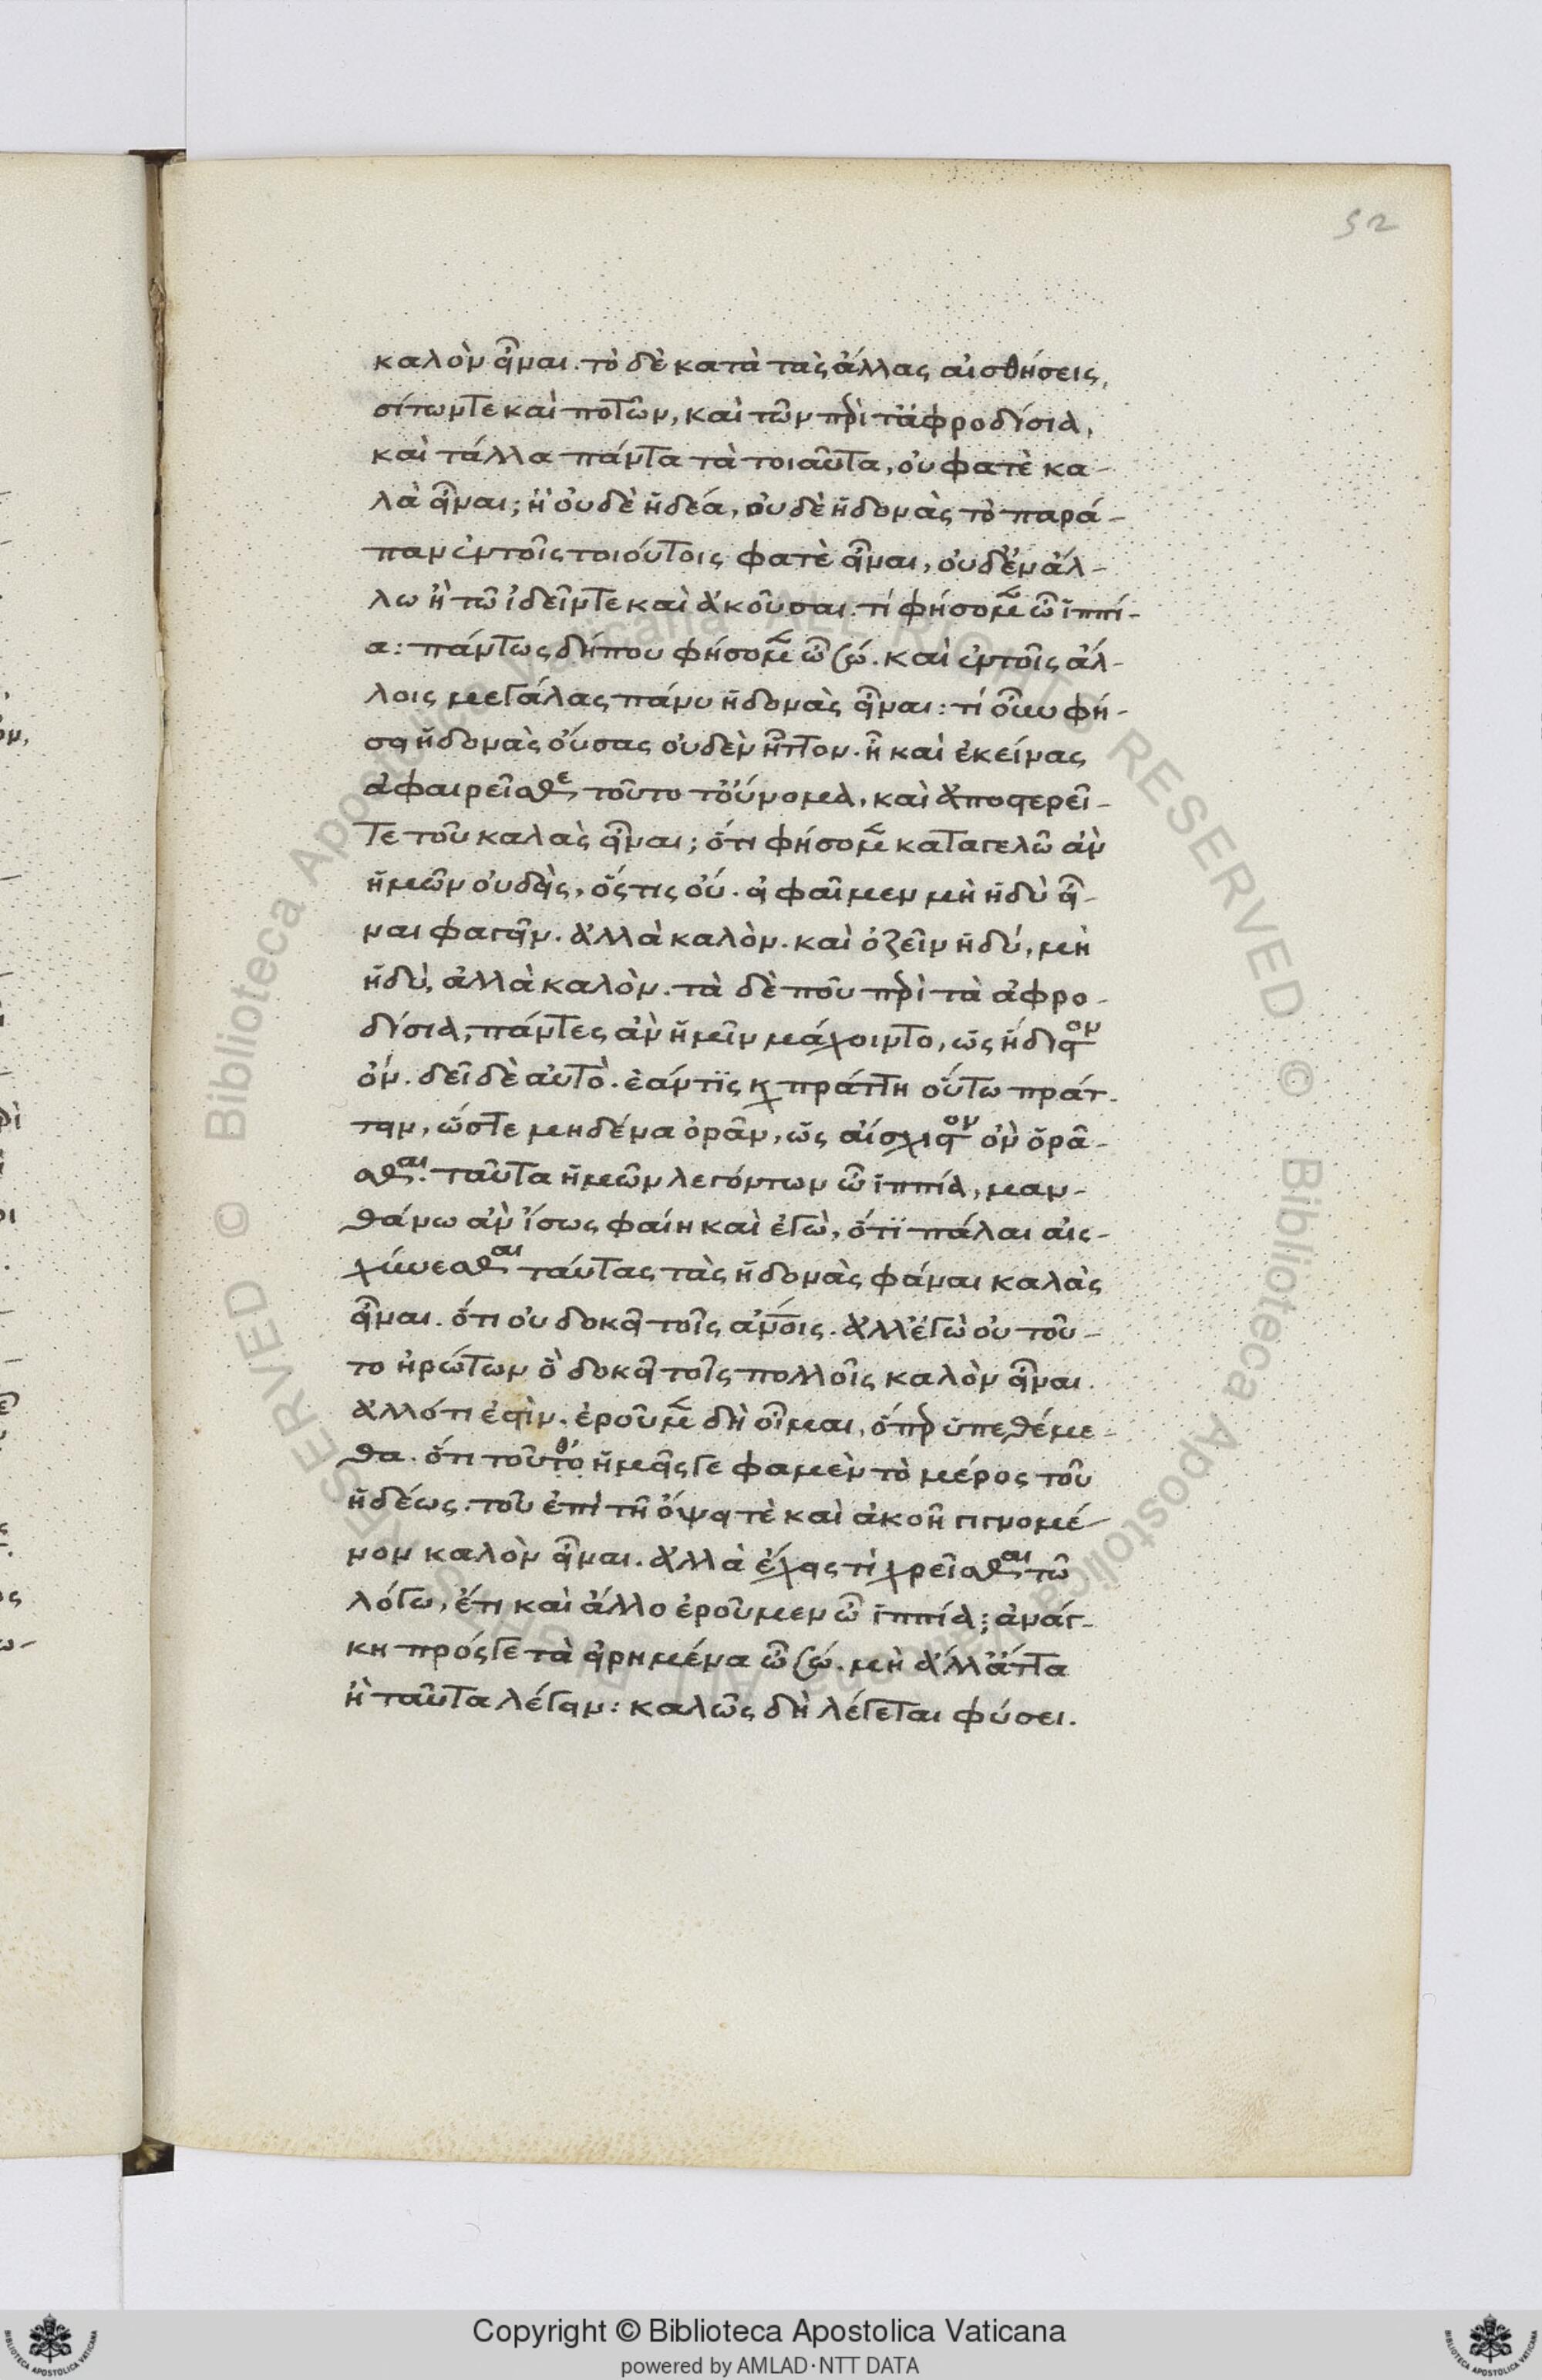 52
καλὸν εἶναι. τὸ δὲ κατὰ τὰς ἄλλας αἰσθήσεις,
σίτων τε καὶ ποτῶν, καὶ τῶν περὶ τἀφροδίσια,
καὶ τἄλλα πάντα τὰ τοιαῦτα, οὔ φατὲ κα-
λὰ εἶναι; ἢ οὐδὲ ἡδέα, οὐδὲ ἡδονὰς τὸ παρά-
παν ἐν τοῖς τοιούτοις φατὲ εἶναι, οὐδ' ἐν ἄλ-
λω ἢ τῶ ἰδεῖν τε καὶ ἀκοῦσαι. τί φήσομεν ὦ ἱππί-
α: πάντως δήπου φήσομεν ὦ σώ. καὶ ἐν τοῖς ἄλ-
λοις μεγάλας πάνυ ἡδονὰς εἶναι: τί οὖν φή-
σει ἡδονὰς οὔσας οὐδὲν ἧττον. ἢ καὶ ἐκείνας
ἀφαιρεῖσθε τοῦτο τοὔνομα, καὶ ἀποστερεῖ-
τε τοῦ καλὰς εἶναι; ὅτι φήσομεν καταγελῶ ἂν
ἡμῶν οὐδεὶς, ὅστις οὔ. εἰ φαῖμεν μὴ ἡδὺ εἶ-
ναι φαγεῖν. ἀλλὰ καλὸν. καὶ ὀζεῖν ἡδύ, μὴ
ἡδὺ, ἀλλὰ καλὸν. τὰ δὲ που περὶ τὰ ἀφρο-
δίσια, πάντες ἂν ἡμῖν μάχοιντο, ὡς ἥδιστον
ὄν. δεῖ δὲ αὐτὸ. ἐάν τις καὶ πράττη οὕτω πράτ-
τειν, ὥστε μηδένα ὁρᾶν, ὡς αἴσχιστον ὂν ὁρᾶ-
σθαι. ταῦτα ἡμῶν λεγόντων ὦ ἱππία, μαν-
θάνω ἂν ἴσως φαίη καὶ ἐγὼ, ὅτι πάλαι αἰσ-
χύνεσθαι ταύτας τὰς ἡδονὰς φάναι καλὰς
εἶναι. ὅτι οὐ δοκεῖ τοῖς ἀνοις. ἀλλ' ἐγὼ οὐ τοῦ-
το ἠρώτων ὃ δοκεῖ τοῖς πολλοῖς καλὸν εἶναι.
ἀλλ' ὅτι ἐστὶν. ἐροῦμεν δὴ οἶμαι, ὅπερ ὑπεθέμε-
θα. ὅτι τοῦτό θ' ἡμεῖς γε φαμὲν τὸ μέρος τοῦ
ἡδέως. τοῦ ἐπὶ τῆ ὄψει τὲ καὶ ἀκοῆ γιγνομέ-
νον καλὸν εἶναι. ἀλλὰ ἔχεις τὶ χρεῖσθαι τῶ
λόγω, ἔτι καὶ ἄλλο ἐροῦμεν ὦ ἱππία; ἀνάγ-
κη πρός γε τὰ εἰρημένα ὦ σώ. μὴ ἄλλ' ἄττα
ἢ ταῦτα λέγειν: καλῶς δὴ λέγεται φύσει.
Biblioteca Apostolica Vaticana ALL RIGHTS RESERVED ©
Copyright © Biblioteca Apostolica Vaticana
powered by AMLAD·NTT DATA